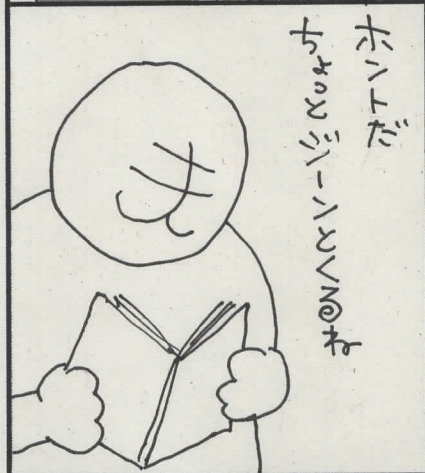 ホントだ
ちょとジーンとくるね